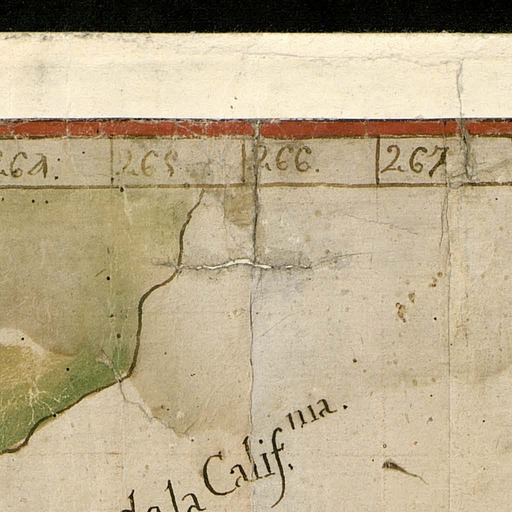 264. 265 266. 267
de la Calif.nia.